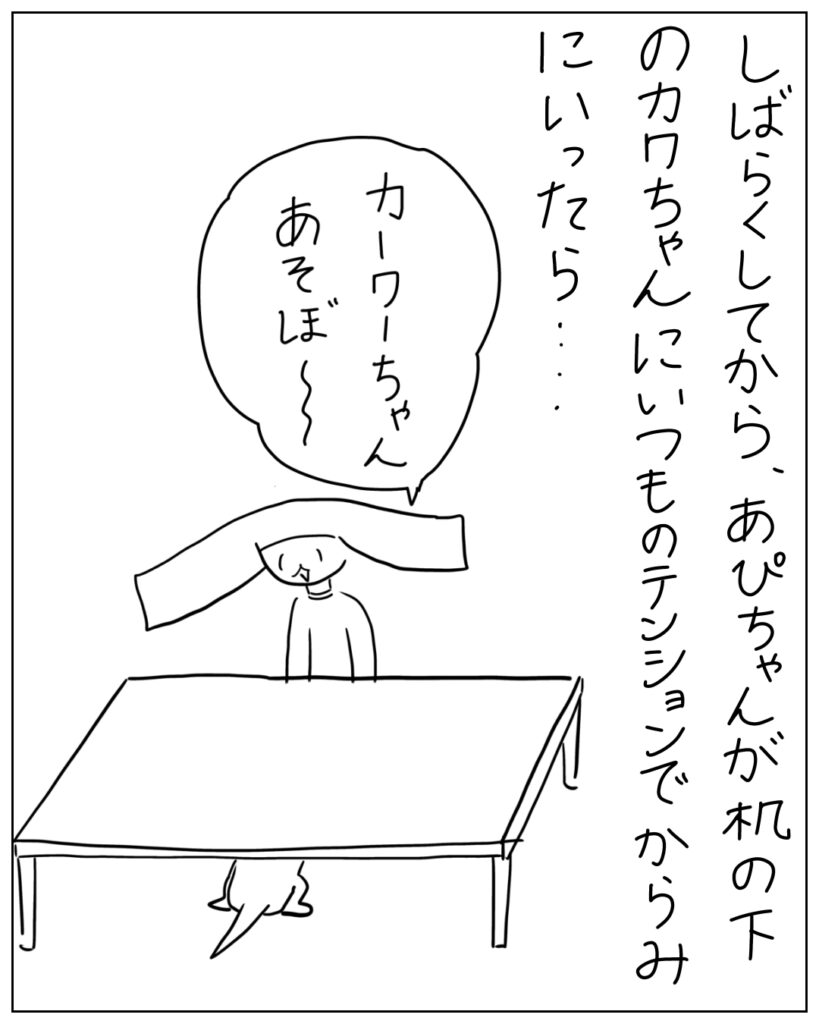 しばらくしてから、あぴちゃんが机の下
のカワちゃんにいつものテンションでからみ
にいったら……
カーワーちゃん
あそぼ〜〜